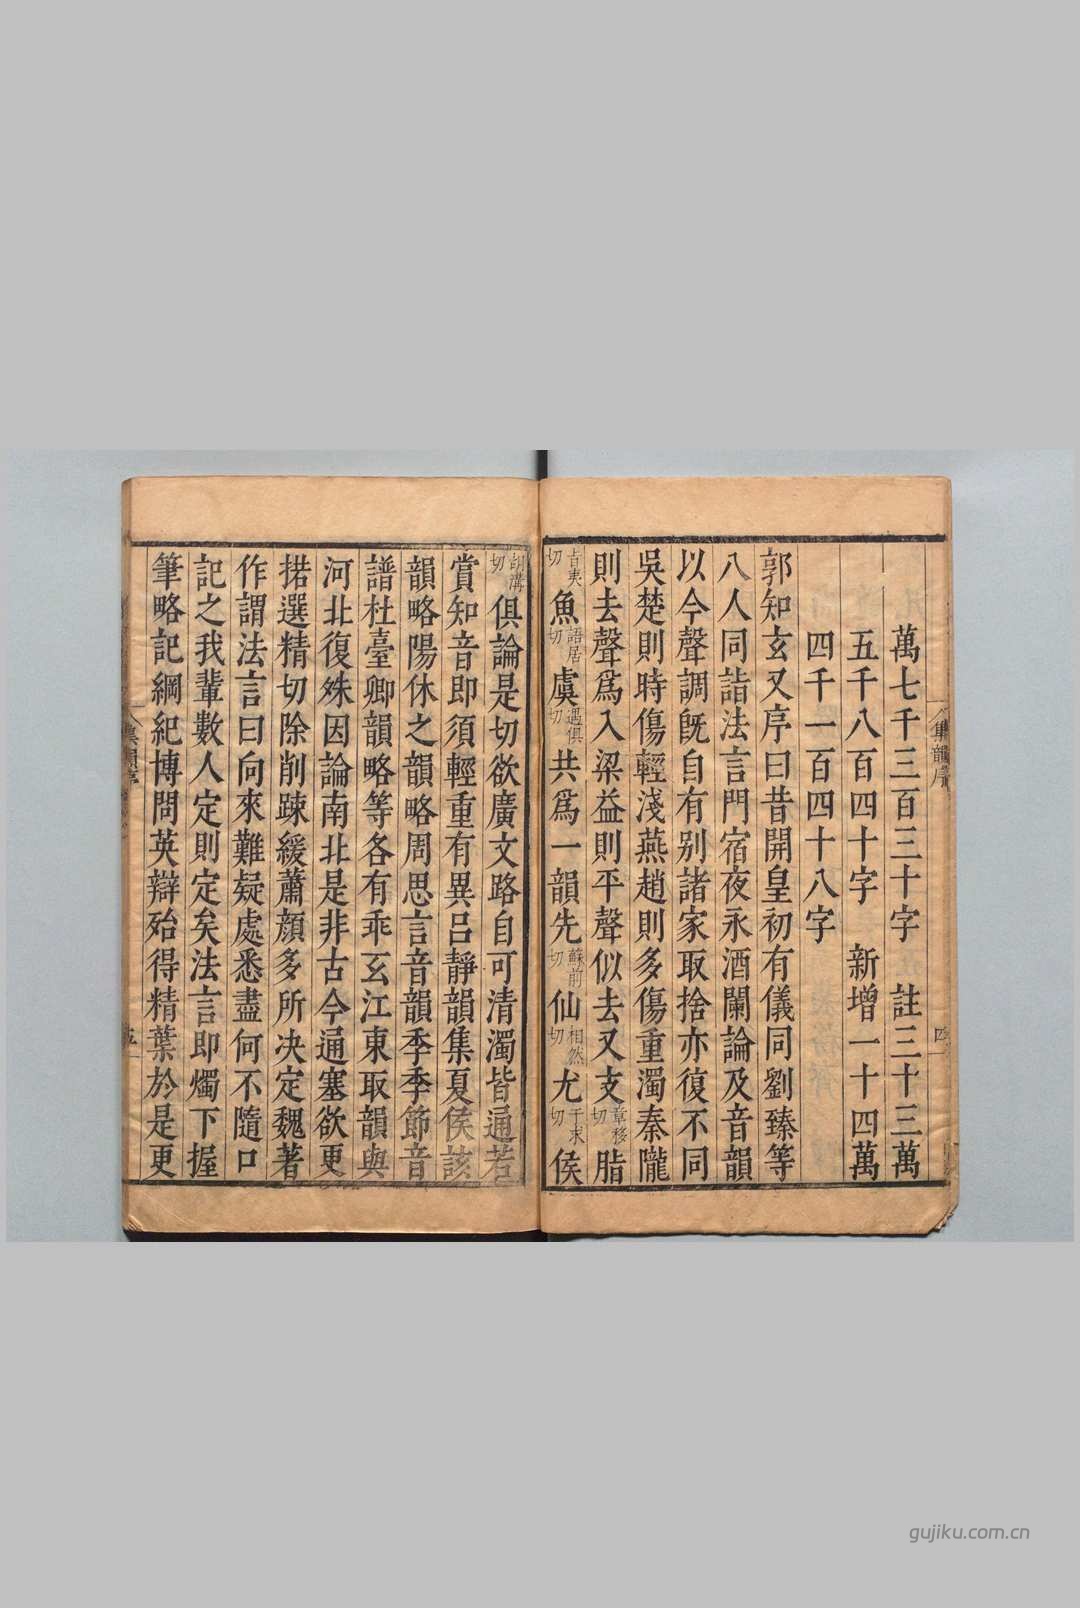 萬七千三百三十字　註三十三萬
五千八百四十字　新增一十四萬
四千一百四十八字
郭知玄又序曰昔開皇初有儀同劉臻等
八人同詣法言門宿夜永酒闌論及音韻
以今聲調旣自有別諸家取捨亦復不同
吳楚則時傷輕淺燕趙則多傷重濁秦隴
則去聲爲入梁益則平聲似去又支章移切脂
旨夷切魚語居切虞遇俱切共爲一韻先蘇前切仙相然切尤于求切侯
胡溝切俱論是切欲廣文路自可清濁皆通若
賞知音即須輕重有異呂靜韻集夏侯該
韻略陽休之韻略周思言音韻李季節音
譜杜臺卿韻略等各有乖玄江東取韻與
河北復殊因論南北是非古今通塞欲更
捃選精切除削踈緩蕭顏多所決定魏著
作謂法言曰向來難疑處悉盡何不隨口
記之我輩數人定則定矣法言即燭下握
筆略記綱紀博問英辯殆得精葉於是更
集韻序
四
五
gujiku.com.cn